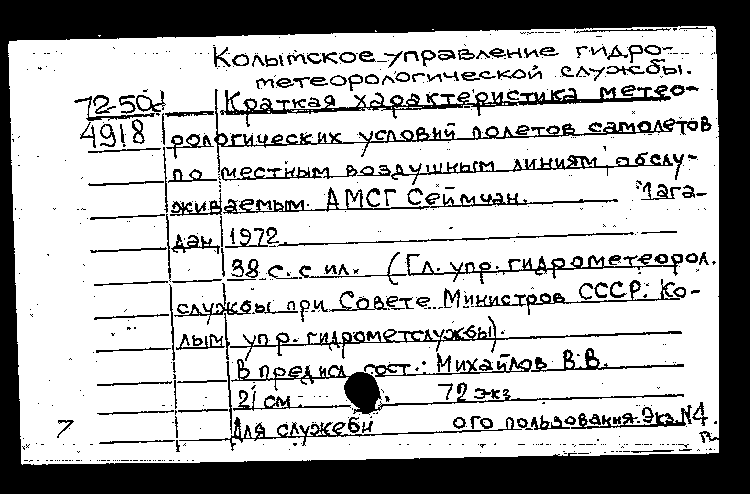 Колымское управление гидро-
метеорологической службы.
72-50d Краткая характеристика метео-
4918 рологических условий полетов самолетов
по местным воздушным линиям, обслу-
живаемым АМСГ Сеймчан. Мага-
дан, 1972.
38 с. с ил. (Гл. упр. гидрометеорол.
службы при Совете Министров СССР. Ко-
лым. упр. гидрометслужбы).
В предисл. сост.: Михайлов В.В.
21 см. 72 экз.
7 Для служебн ого пользования. Экз. №4.